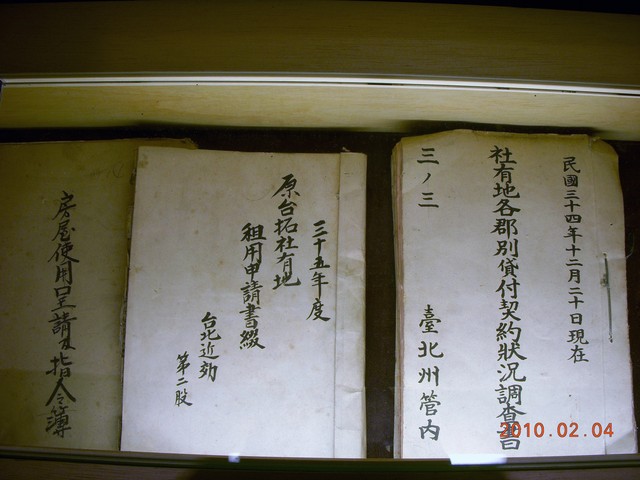 民國三十四年十二月二十日現在
社有地各郡別貸付契約狀況調查書
三ノ三
臺北州管內
三十五年度
原台拓社有地
租用申請書綴
台北近効
第二股
房屋使用呈請及指令簿
2010.02.04